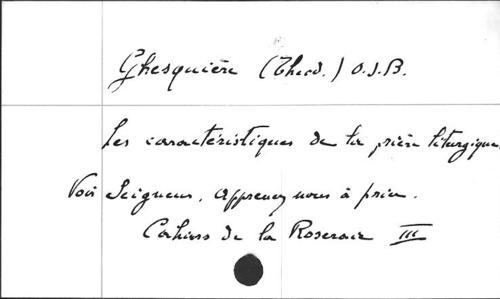 Ghesquière (Théod.) O.S.B.
Les caractéristiques de la prière liturgique.
Voir Seigneur, apprenez nous à prier.
Cahiers de la Roseraie III